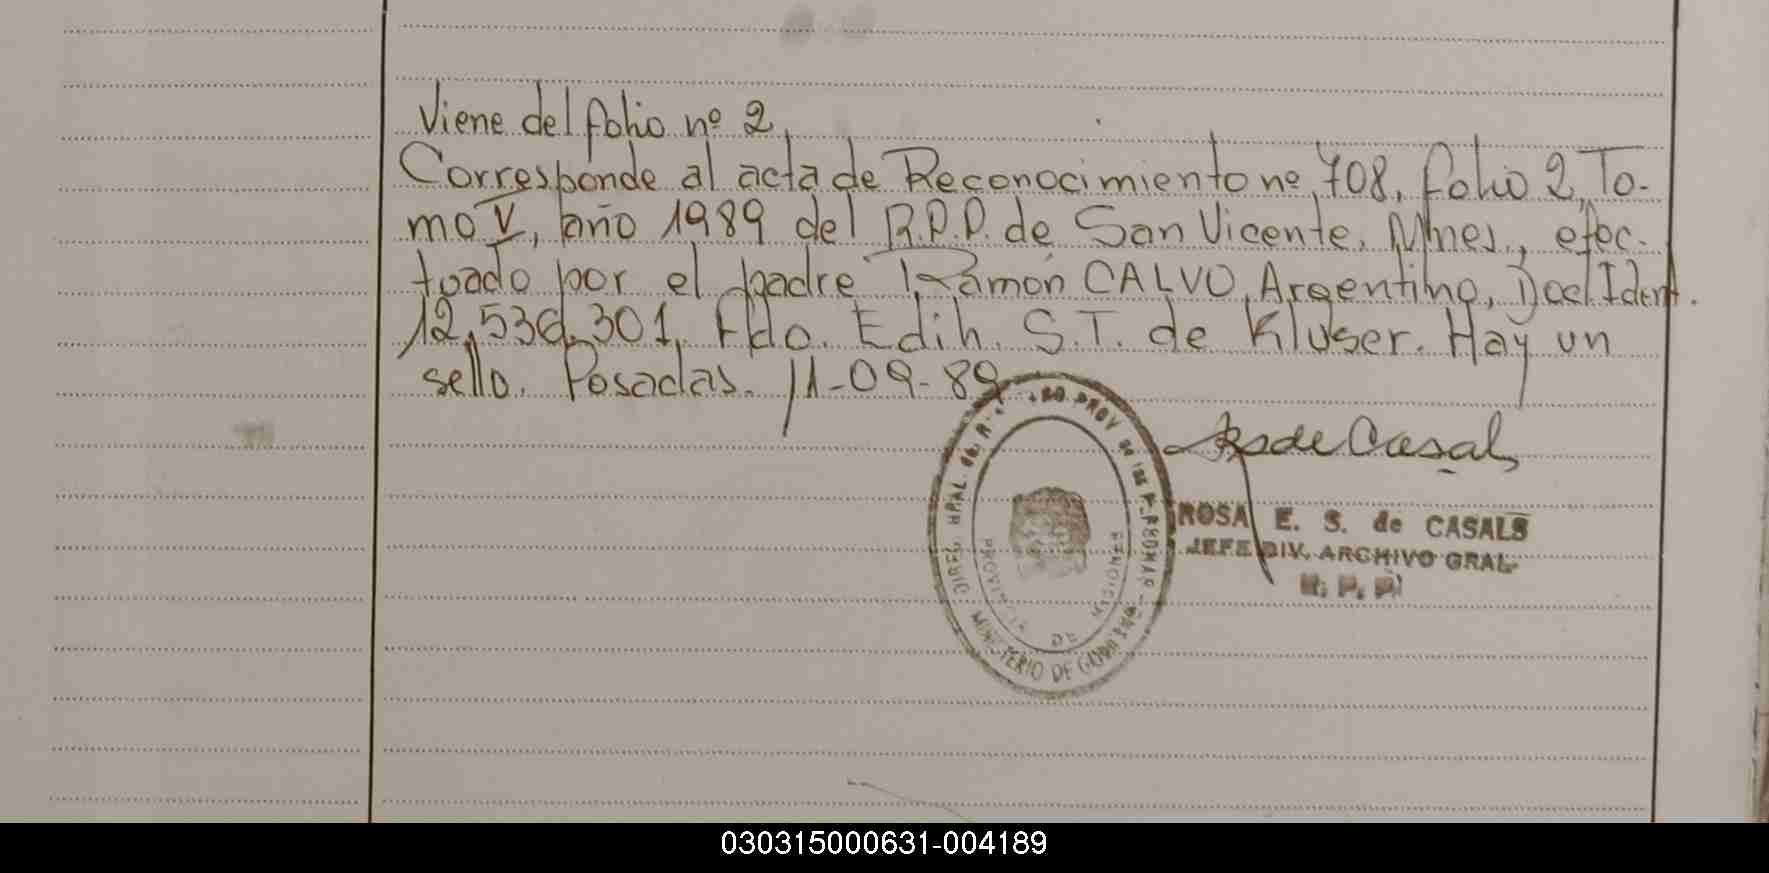 Viene del folio nº 2,
Corresponde al acta de Reconocimiento nº 708, folio 2, To-
mo V, año 1989 del R.P.P. de San Vicente, Mnes., efec-
tuado por el padre Ramón CALVO, Argentino, Doc. Ident.
12.536.301. Fdo. Edih. S.T. de Kluser. Hay un
sello. Posadas. 11-09-89
ROSA E. S. de CASALS
JEFE DIV. ARCHIVO GRAL.
R. P. P.
PROVINCIA DE MISIONES
MINISTERIO DE
030315000631-004189